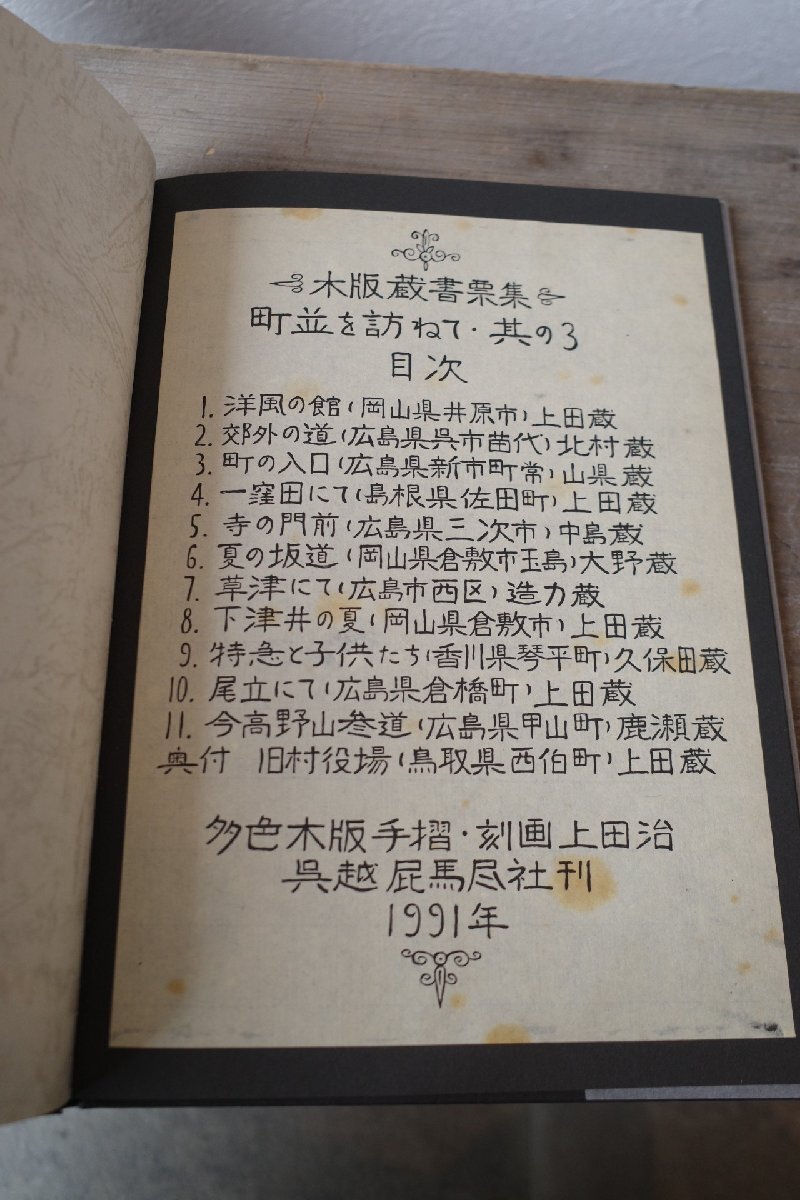 木版蔵書票集
町並を訪ねて・其の3
目次
1. 洋風の館(岡山県井原市)上田蔵
2. 郊外の道(広島県呉市苗代)北村蔵
3. 町の入口(広島県新市町常)山県蔵
4. 一窪田にて(島根県佐田町)上田蔵
5. 寺の門前(広島県三次市)中島蔵
6. 夏の坂道(岡山県倉敷市玉島)大野蔵
7. 草津にて(広島市西区)造力蔵
8. 下津井の夏(岡山県倉敷市)上田蔵
9. 特急と子供たち(香川県琴平町)久保田蔵
10. 尾立にて(広島県倉橋町)上田蔵
11. 今高野山参道(広島県甲山町)鹿瀬蔵
奥付 旧村役場(鳥取県西伯町)上田蔵
多色木版手摺・刻画上田治
呉越屁馬尽社刊
1991年